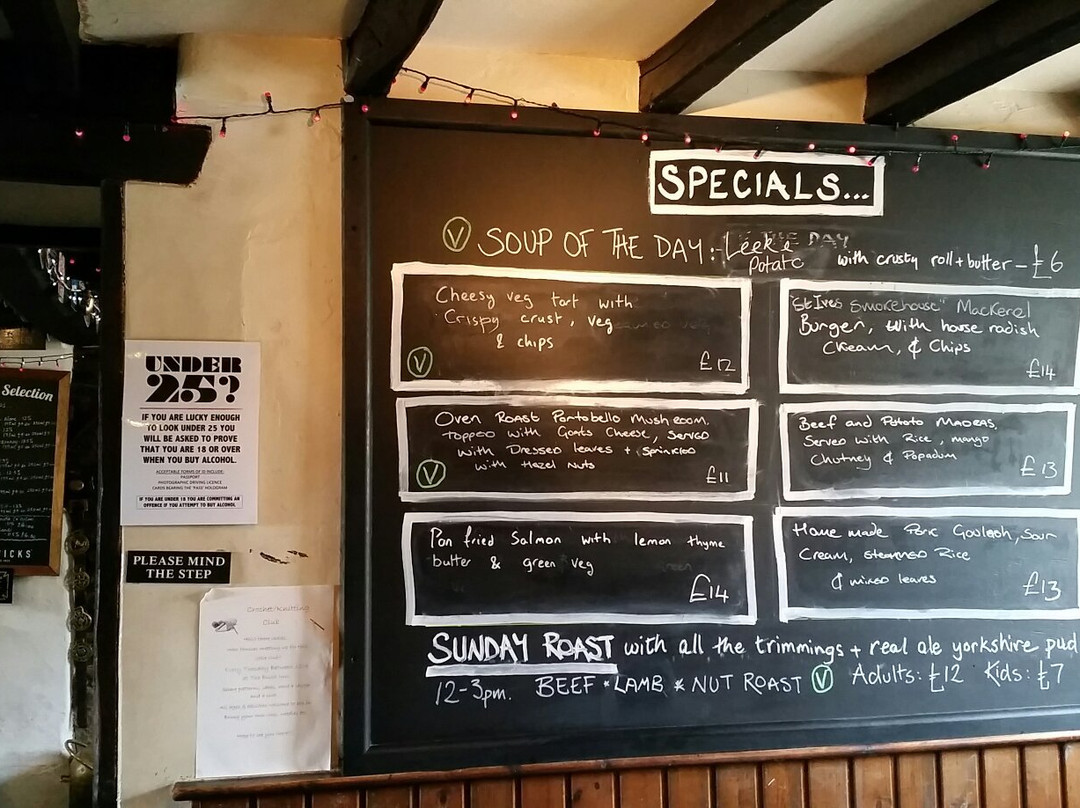 SPECIALS...
V SOUP OF THE DAY:- Leek & Potato with crusty roll + butter - £6
Cheesy veg tart with
Crispy crust, veg
& chips
V £12
"St Ives Smokehouse" Mackerel
Burger, with house radish
Cream, & Chips
£14
Oven Roast Portobello Mushroom,
topped with Goats Cheese, Served
with Dressed leaves + sprinkled
with Hazel Nuts
V £11
Beef and Potato Madras,
Served with Rice, mango
Chutney & Popadum
£13
Pan fried Salmon with lemon thyme
butter & green veg
£14
Home made Porc Goulash, Sour
Cream, steamed Rice
& mixed leaves
£13
SUNDAY ROAST with all the trimmings + real ale yorkshire pud
12-3pm. BEEF * LAMB * NUT ROAST V Adults: £12 Kids: £7
UNDER
25?
IF YOU ARE LUCKY ENOUGH
TO LOOK UNDER 25 YOU
WILL BE ASKED TO PROVE
THAT YOU ARE 18 OR OVER
WHEN YOU BUY ALCOHOL.
ACCEPTABLE FORMS OF ID INCLUDE:
PASSPORT
PHOTOGRAPHIC DRIVING LICENCE
CARDS BEARING THE 'PASS' HOLOGRAM
IF YOU ARE UNDER 18 YOU ARE COMMITTING AN
OFFENCE IF YOU ATTEMPT TO BUY ALCOHOL
PLEASE MIND
THE STEP
Crochet/Knitting
Club
Selection